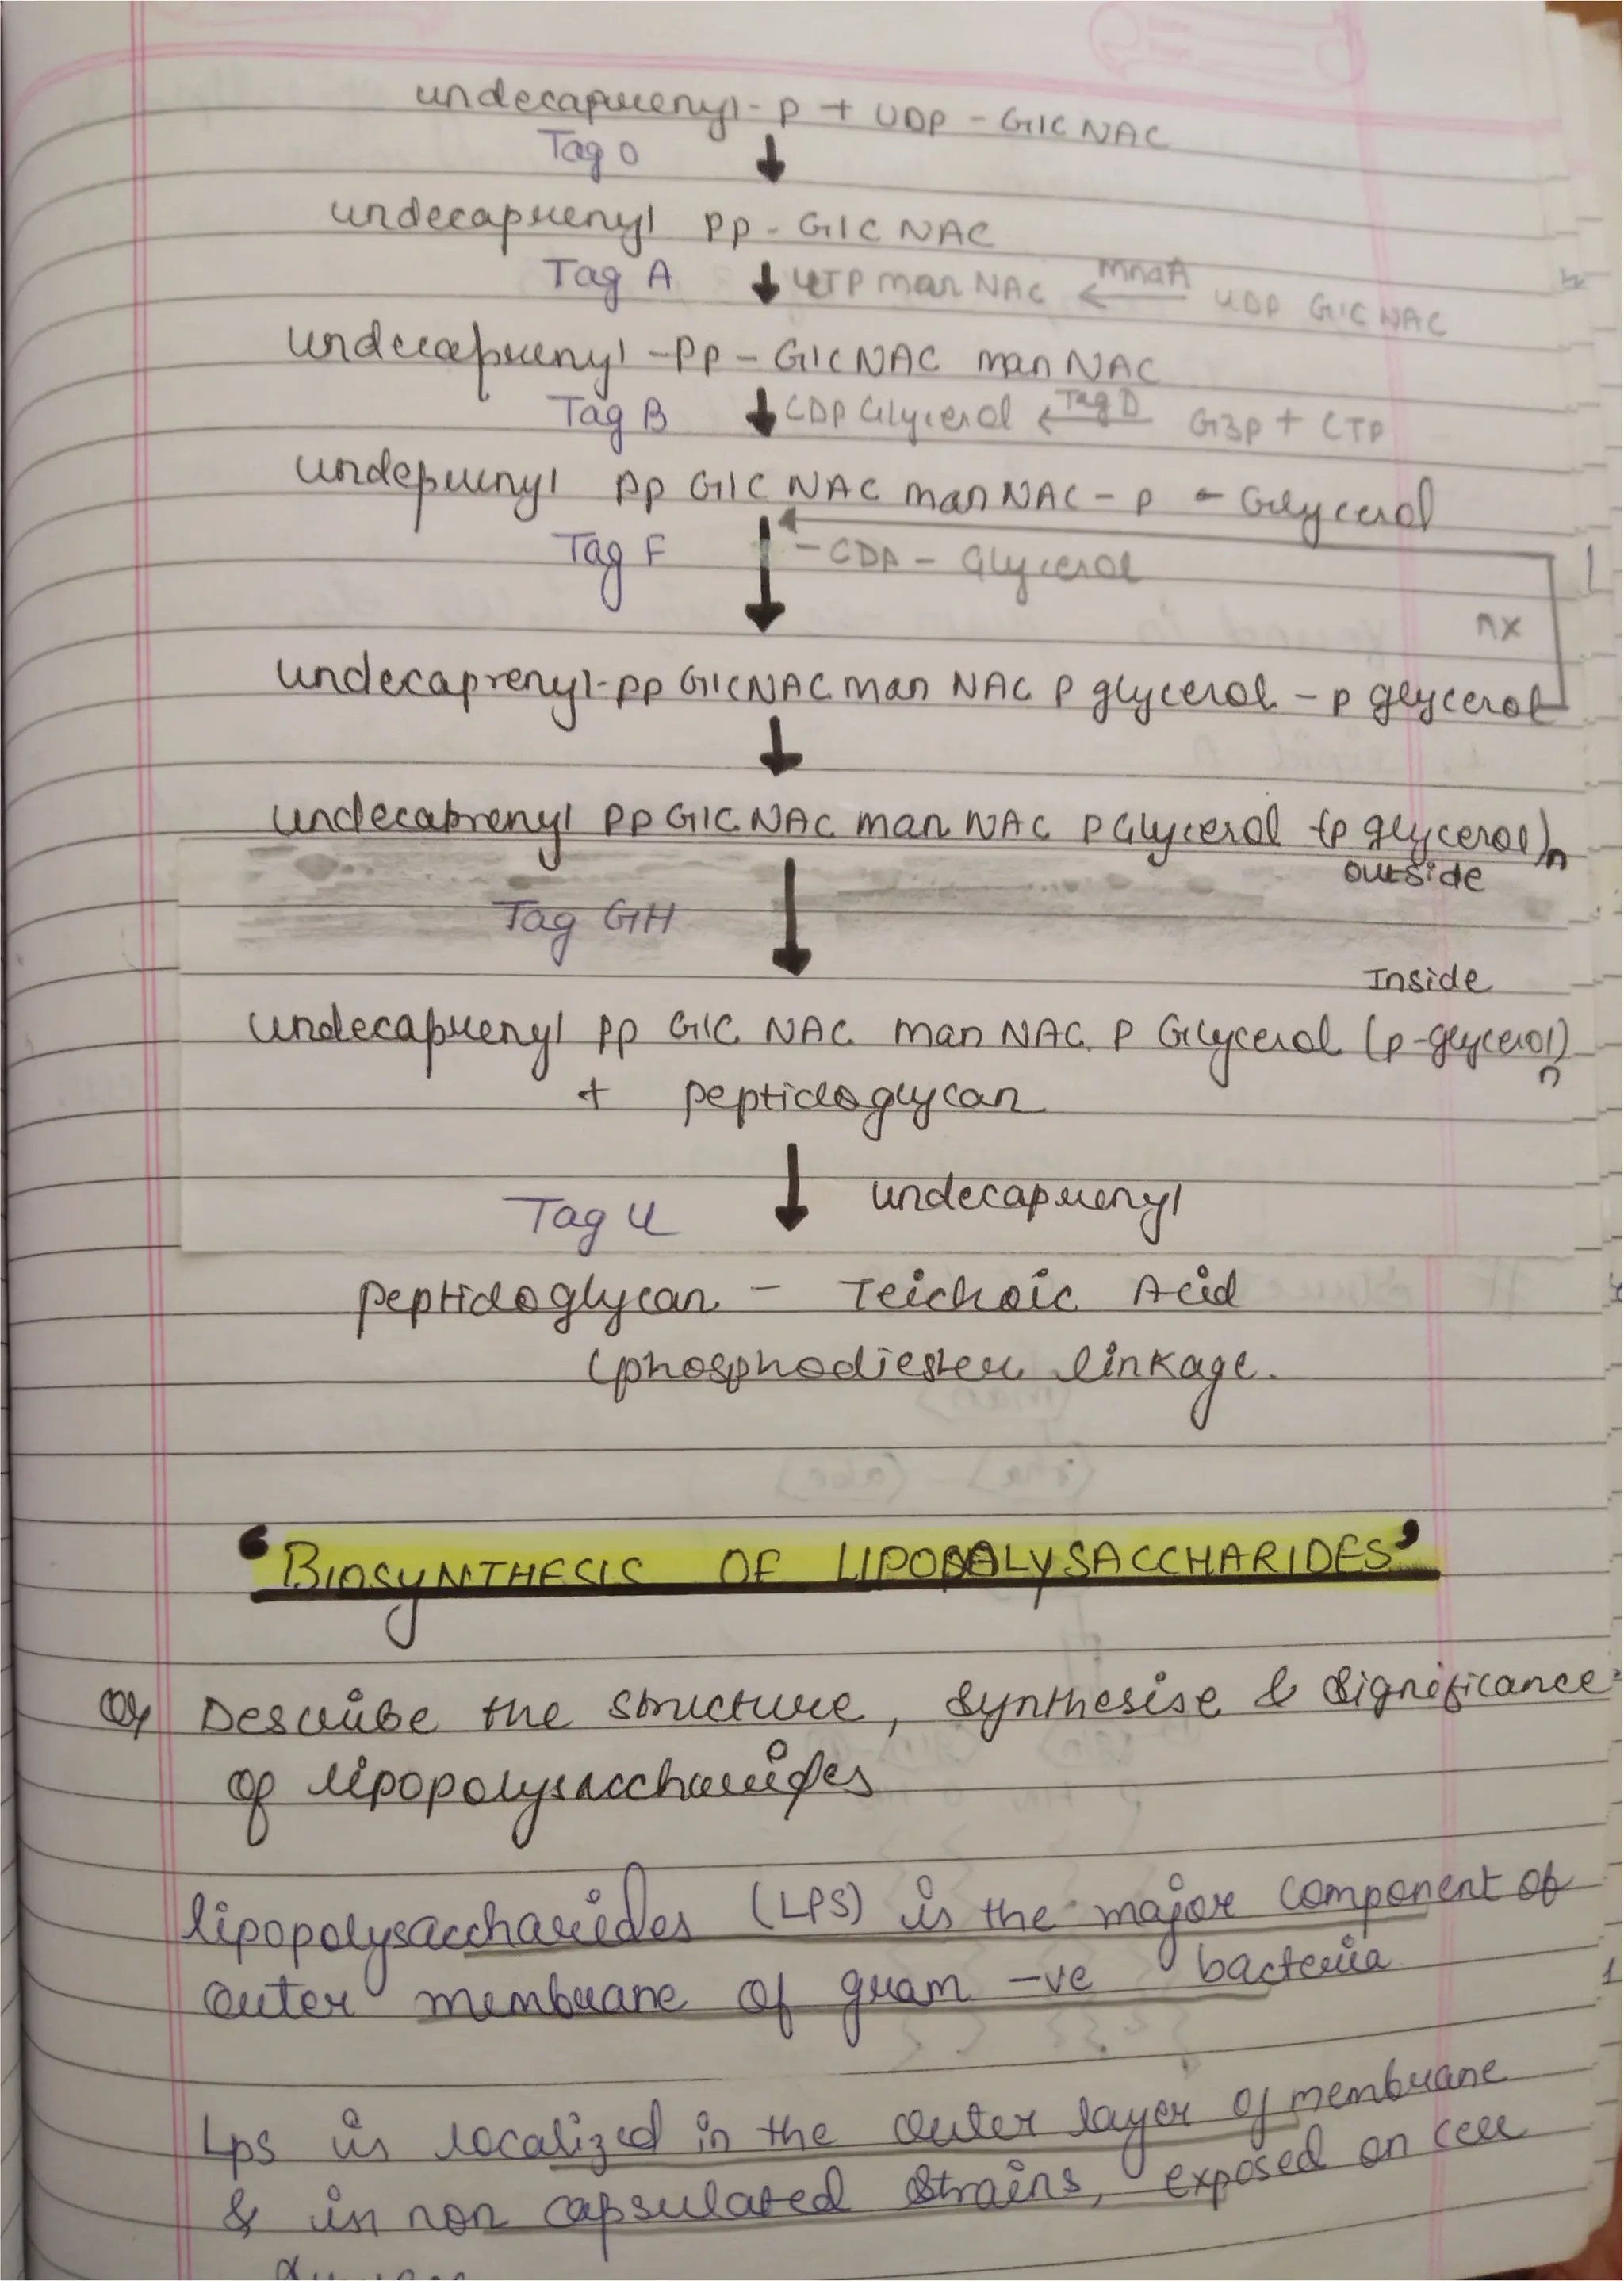 undecaprenyl - P + UDP - GlC NAC
Tag O
undecaprenyl pp - GlC NAC
Tag A UTP man NAC MnaA UDP GlC NAC
undecaprenyl - PP - GlC NAC man NAC
Tag B CDP Glycerol Tag D G3P + CTP
undeprenyl pp GlC NAC man NAC - P - Glycerol
Tag F - CDA - Glycerol
nx
undecaprenyl-pp GlC NAC man NAC P glycerol - P glycerol
undecaprenyl pp GlC NAC man NAC P Glycerol (p glycerol)n
outside
Tag GH
Inside
undecaprenyl pp GlC NAC man NAC P Glycerol (p-glycerol)n
+ peptidoglycan
Tag U undecaprenyl
peptidoglycan - Teichoic Acid
(phosphodiester linkage.
'BIOSYNTHESIS OF LIPOPOLYSACCHARIDES'
Q) Describe the structure, synthesise & significance
of lipopolysaccharides
lipopolysaccharides (LPS) is the major component of
outer membrane of gram -ve bacteria
Lps is localized in the outer layer of membrane
& in non capsulated strains, exposed on cell